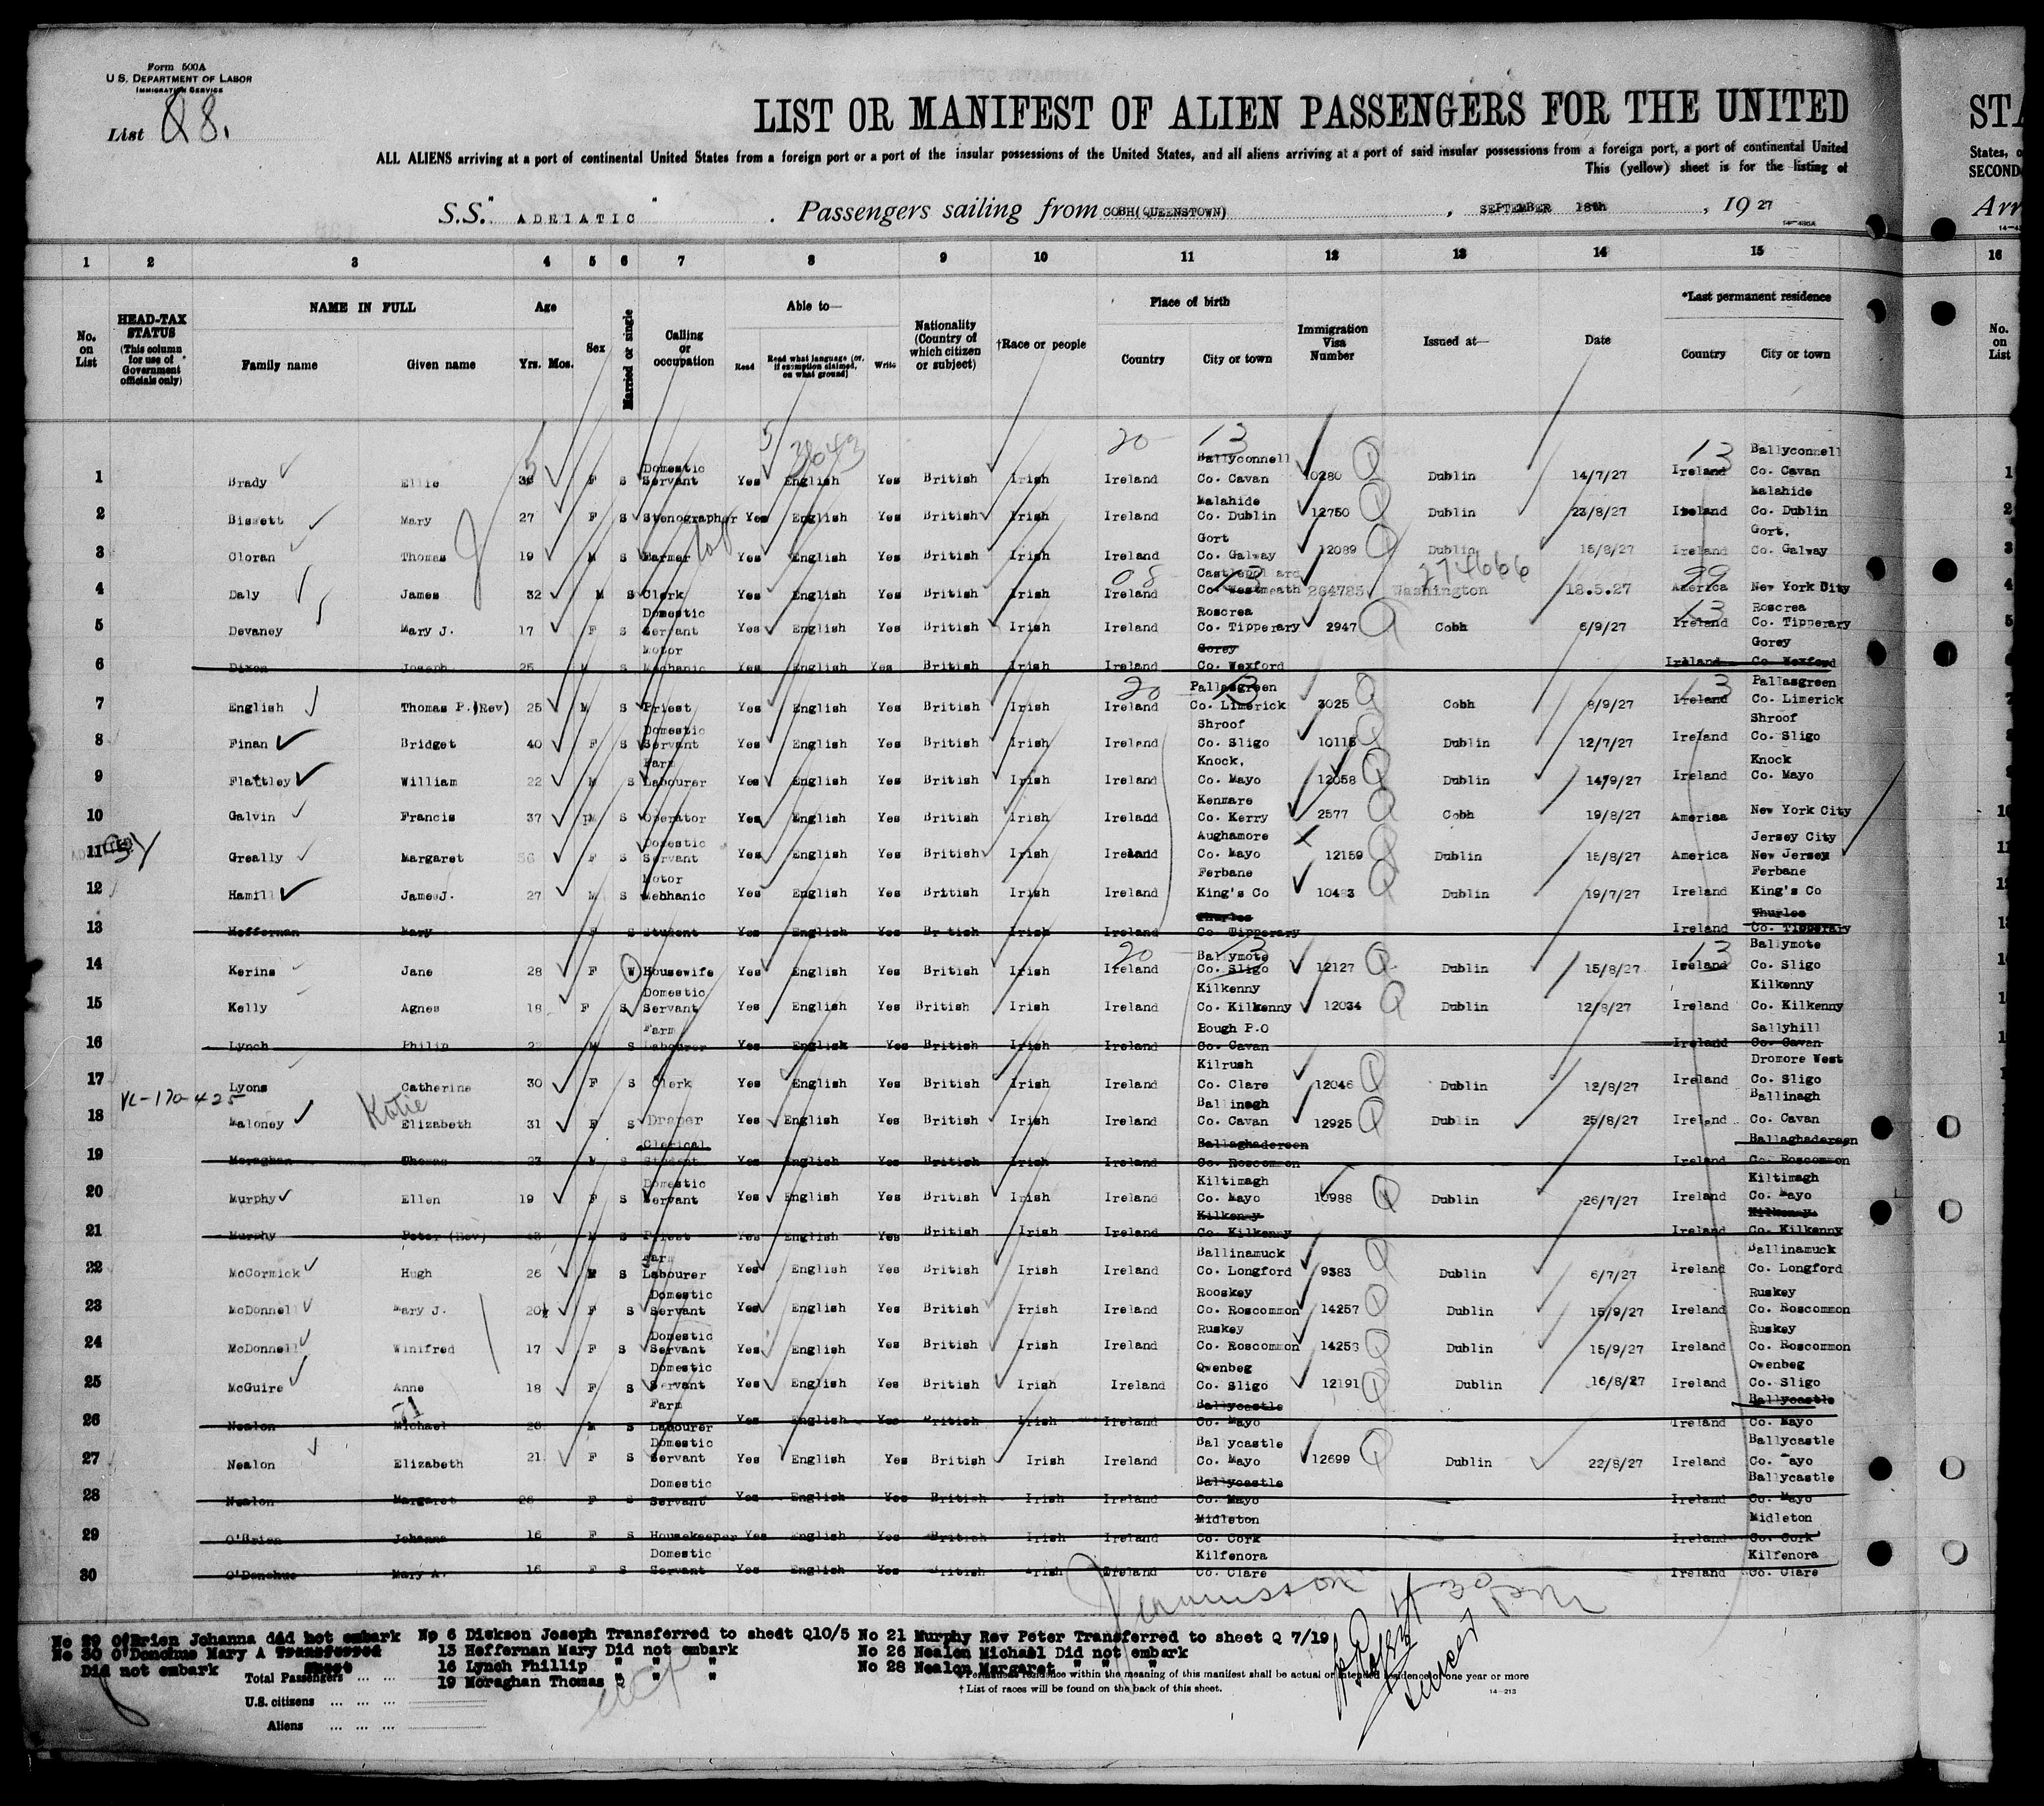 Form 500A
U S. DEPARTMENT OF LABOR
IMMIGRATION SERVICE
List Q 8.
LIST OR MANIFEST OF ALIEN PASSENGERS FOR THE UNITED
STA
ALL ALIENS arriving at a port of continental United States from a foreign port or a port of the insular possessions of the United States, and all aliens arriving at a port of said insular possessions from a foreign port, a port of continental United
States, o
This (yellow) sheet is for the listing of
SECOND
S.S. " ADRIATIC " . Passengers sailing from COBH(QUEENSTOWN) , SEPTEMBER 18th , 19 27
Arr
1 2 3 4 5 6 7 8 9 10 11 12 13 14 15 16
No. on List
HEAD-TAX STATUS (This column for use of Government officials only)
NAME IN FULL
Family name Given name
Age
Yrs. Mos.
Sex
Married or single
Calling or occupation
Able to—
Read Read what language (or, if exemption claimed, on what ground) Write
Nationality (Country of which citizen or subject)
†Race or people
Place of birth
Country City or town
Immigration Visa Number
Issued at—
Date
*Last permanent residence
Country City or town
No. on List
5 3643 20 13 13
1 Brady Ellie 36 F S Domestic Servant Yes English Yes British Irish Ireland Ballyconnell Co. Cavan 10280 Q Dublin 14/7/27 Ireland Ballyconnell Co. Cavan
2 Bissett Mary 27 F S Stenographer Yes English Yes British Irish Ireland Malahide Co. Dublin 12750 Q Dublin 23/8/27 Ireland Malahide Co. Dublin
3 Cloran Thomas 19 M S Farmer Yes English Yes British Irish Ireland Gort Co. Galway 12089 Q Dublin 15/8/27 Ireland Gort, Co. Galway
08 13 274666 29
4 Daly James 32 M S Clerk Yes English Yes British Irish Ireland Castlepollard Co. Westmeath 264785 Washington 18.5.27 America New York City
13
5 Devaney Mary J. 17 F S Domestic Servant Yes English Yes British Irish Ireland Roscrea Co. Tipperary 2947 Q Cobh 6/9/27 Ireland Roscrea Co. Tipperary
6 Dixon Joseph 25 M S Motor Mechanic Yes English Yes British Irish Ireland Gorey Co. Wexford Ireland Gorey Co. Wexford
20 13 13
7 English Thomas P.(Rev) 25 M S Priest Yes English Yes British Irish Ireland Pallasgreen Co. Limerick 3025 Q Cobh 8/9/27 Ireland Pallasgreen Co. Limerick
8 Finan Bridget 40 F S Domestic Servant Yes English Yes British Irish Ireland Shroof Co. Sligo 10115 Q Dublin 12/7/27 Ireland Shroof Co. Sligo
9 Flattley William 22 M S Farm Labourer Yes English Yes British Irish Ireland Knock, Co. Mayo 12058 Q Dublin 14/9/27 Ireland Knock Co. Mayo
10 Galvin Francis 37 M S Operator Yes English Yes British Irish Ireland Kenmare Co. Kerry 2577 Q Cobh 19/8/27 America New York City
11 Greally Margaret 36 F S Domestic Servant Yes English Yes British Irish Ireland Aughamore Co. Mayo 12159 Q Dublin 15/8/27 America Jersey City New Jersey
12 Hamill James J. 27 M S Motor Mehhanic Yes English Yes British Irish Ireland Ferbane King's Co 10483 Q Dublin 19/7/27 Ireland Ferbane King's Co
13 Heffernan Mary F S Student Yes English Yes British Irish Ireland Thurles Co. Tipperary Ireland Thurles Co. Tipperary
20 13 13
14 Kerins Jane 28 F W Housewife Yes English Yes British Irish Ireland Ballymote Co. Sligo 12127 Q Dublin 15/8/27 Ireland Ballymote Co. Sligo
15 Kelly Agnes 18 F S Domestic Servant Yes English Yes British Irish Ireland Kilkenny Co. Kilkenny 12034 Q Dublin 12/8/27 Ireland Kilkenny Co. Kilkenny
16 Lynch Philip M S Farm Labourer Yes English Yes British Irish Ireland P.O Co. Cavan Ireland Sallyhill Co. Cavan
17 Lyons Catherine 30 F S Clerk Yes English Yes British Irish Ireland Kilrush Co. Clare 12046 Q Dublin 12/8/27 Ireland Dromore West Co. Sligo
VL-170-425 Katie
18 Maloney Elizabeth 31 F S Draper Yes English Yes British Irish Ireland Ballinagh Co. Cavan 12925 Q Dublin 25/8/27 Ireland Ballinagh Co. Cavan
19 Moraghan Thomas 23 M S Clerical Student Yes English Yes British Irish Ireland Ballaghadereen Co. Roscommon Ireland Ballaghadereen Co. Roscommon
20 Murphy Ellen 19 F S Domestic Servant Yes English Yes British Irish Ireland Kiltimagh Co. Mayo 10988 Q Dublin 26/7/27 Ireland Kiltimagh Co. Mayo
21 Murphy Peter (Rev) 43 M S Priest Yes English Yes British Irish Ireland Kilkenny Co. Kilkenny Ireland Kilkenny. Co. Kilkenny
22 McCormick Hugh 26 M S Farm Labourer Yes English Yes British Irish Ireland Ballinamuck Co. Longford 9383 Q Dublin 6/7/27 Ireland Ballinamuck Co. Longford
23 McDonnell Mary J. 20½ F S Domestic Servant Yes English Yes British Irish Ireland Rooskey Co. Roscommon 14257 Q Dublin 15/9/27 Ireland Ruskey Co. Roscommon
24 McDonnell Winifred 17 F S Domestic Servant Yes English Yes British Irish Ireland Ruskey Co. Roscommon 14258 Q Dublin 15/9/27 Ireland Ruskey Co. Roscommon
25 McGuire Anne 18 F S Domestic Servant Yes English Yes British Irish Ireland Owenbeg Co. Sligo 12191 Q Dublin 16/8/27 Ireland Owenbeg Co. Sligo
26 Nealon Michael 28 M S Farm Labourer Yes English Yes British Irish Ireland Ballycastle Co. Mayo Ireland Ballycastle Co. Mayo
27 Nealon Elizabeth 21 F S Domestic Servant Yes English Yes British Irish Ireland Ballycastle Co. Mayo 12699 Q Dublin 22/8/27 Ireland Ballycastle Co. Mayo
28 Nealon Margaret 26 F S Domestic Servant Yes English Yes British Irish Ireland Ballycastle Co. Mayo Ireland Ballycastle Co. Mayo
29 O'Brien Johanna 16 F S Housekeeper Yes English Yes British Irish Ireland Midleton Co. Cork Ireland Midleton Co. Cork
30 O'Donohue Mary A. 16 F S Domestic Servant Yes English Yes British Irish Ireland Kilfenora Co. Clare Ireland Kilfenora Co. Clare
No 29 O'Brien Johanna did not embark
No 30 O'Donohue Mary A Transferred Sheet
Did not embark
No 6 Dickson Joseph Transferred to shedt Q10/5
13 Heffernan Mary Did not embark
16 Lynch Phillip " " "
19 Moraghan Thomas " " "
No 21 Murphy Rev Peter Transferred to sheet Q 7/19
No 26 Nealon Michael Did not embark
No 28 Nealon Margaret " " "
Total Passengers ... ...
U.S. citizens ... ... ...
Aliens ... ... ...
* Permanent residence within the meaning of this manifest shall be actual or intended residence of one year or more
† List of races will be found on the back of this sheet.
14—213